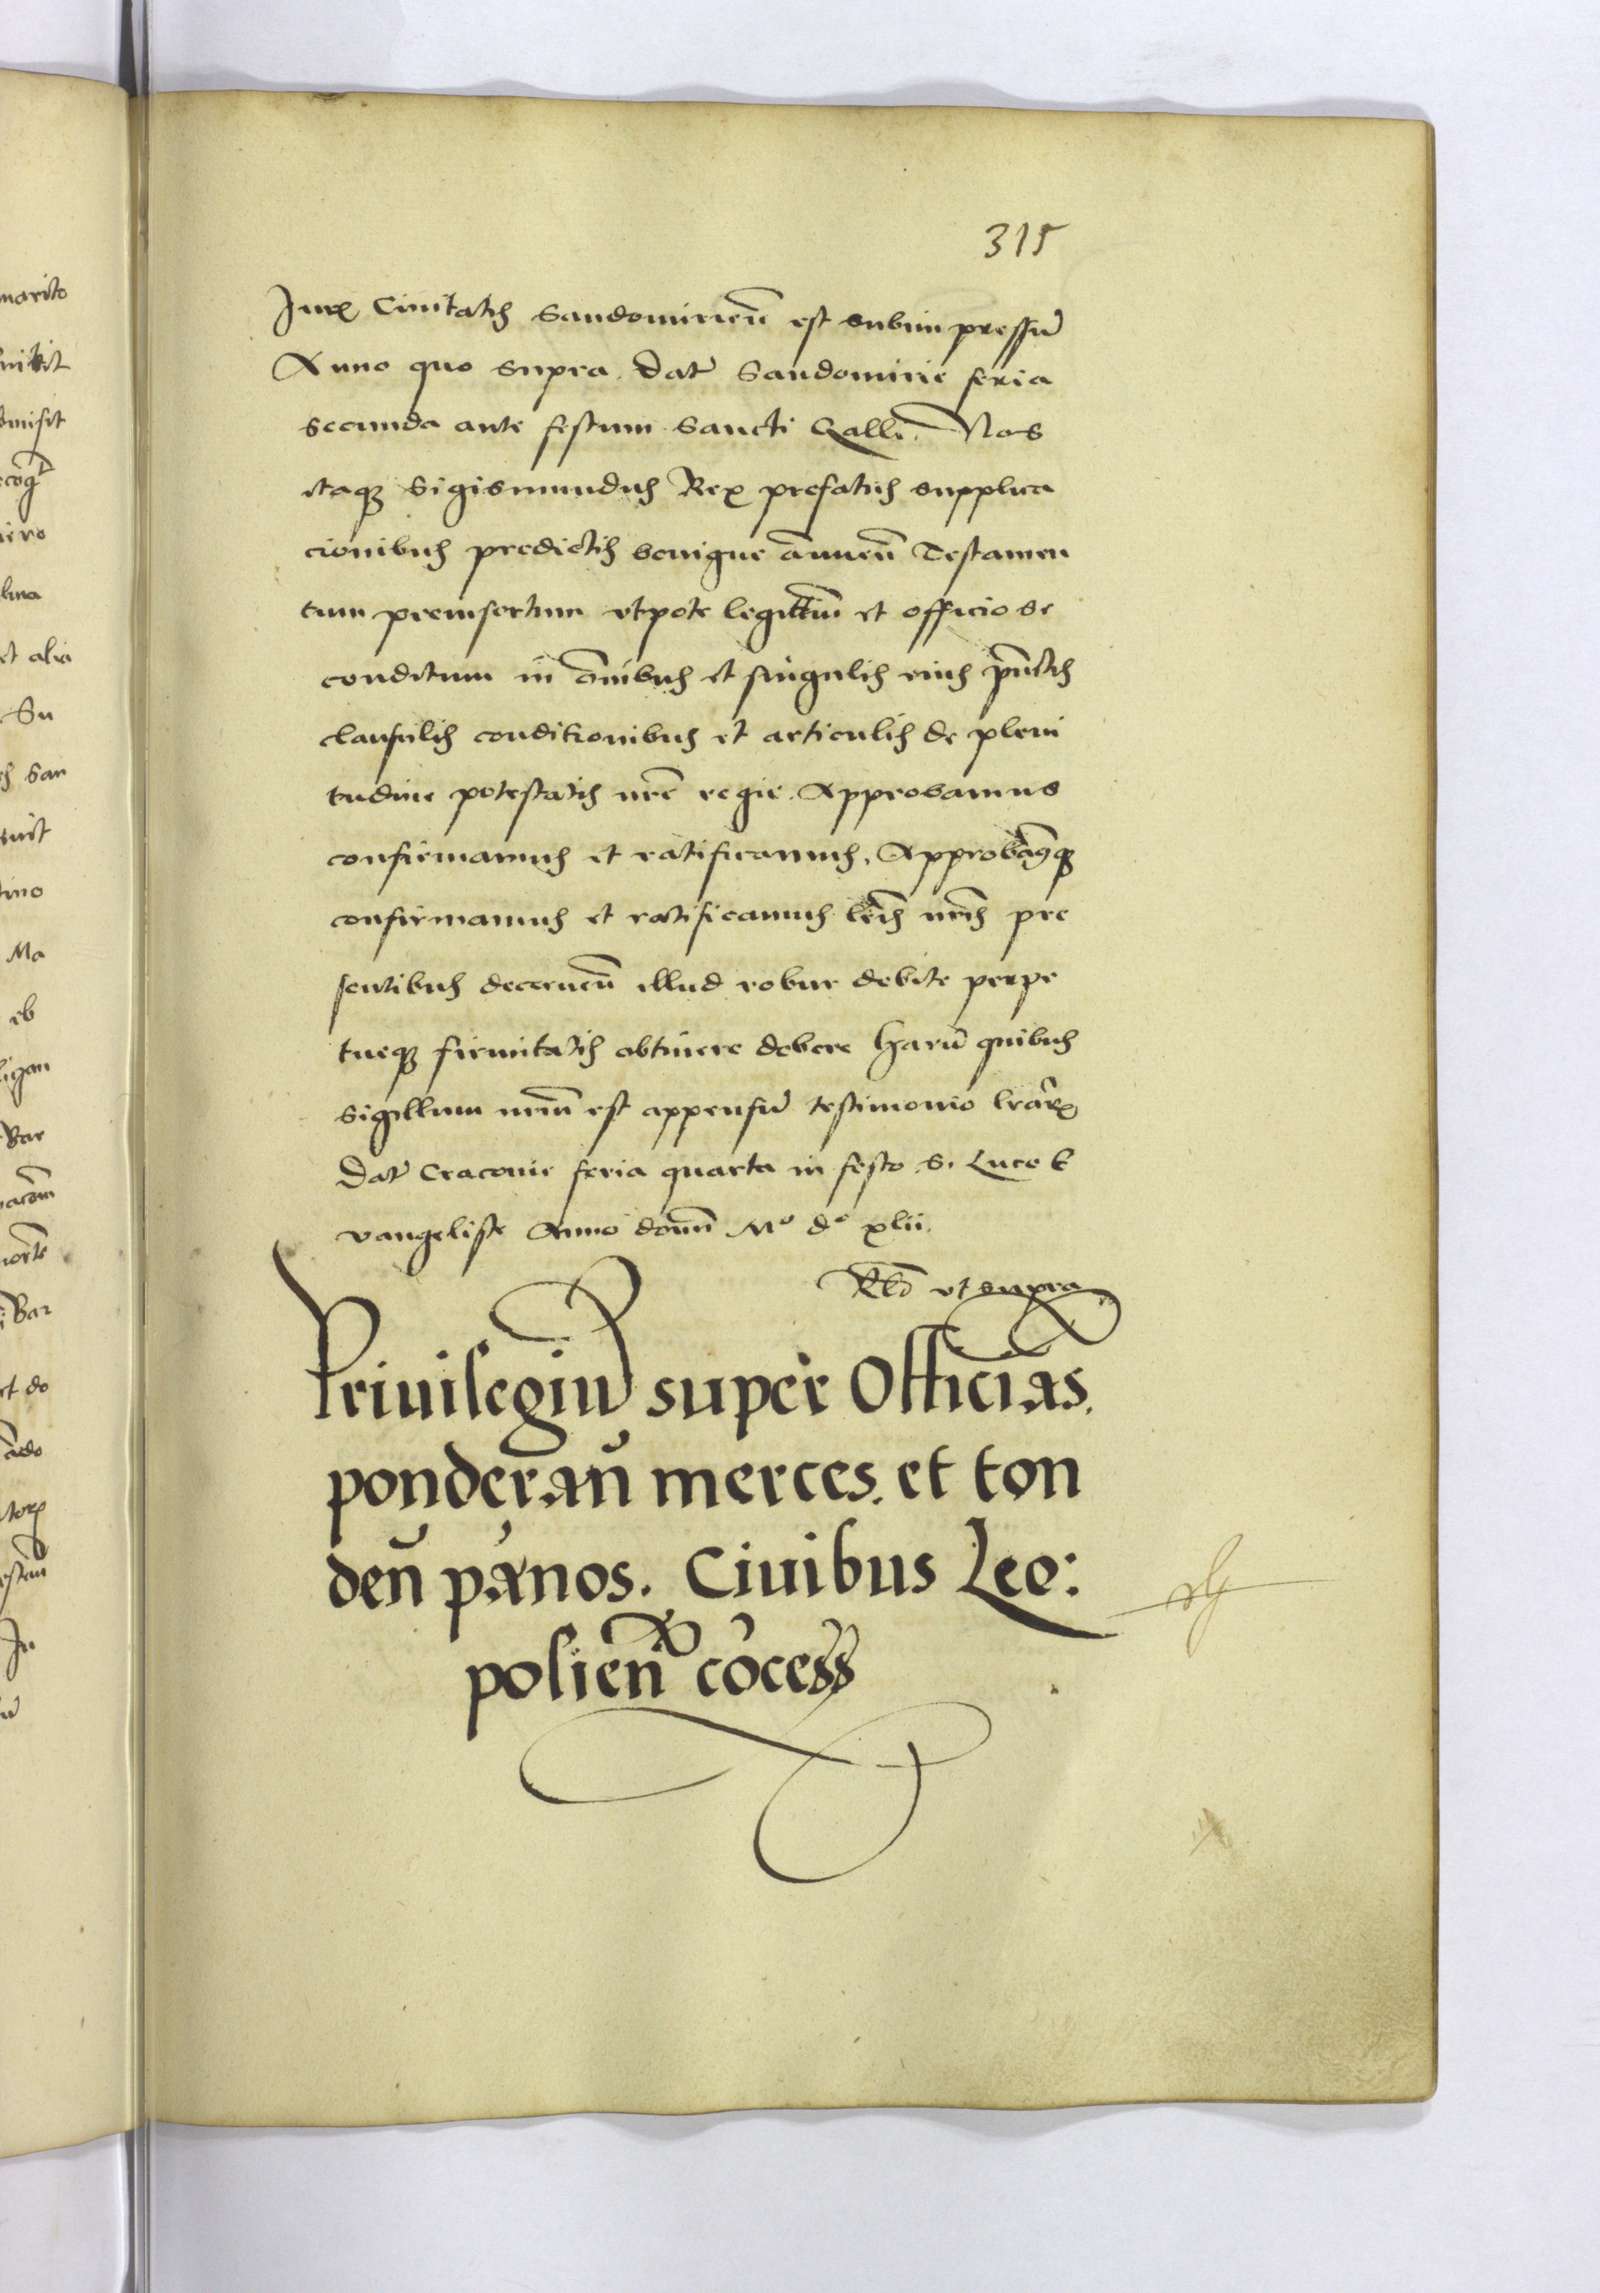 315
Jurꝭ Civitatis Sandomirieñ est subimpressũ
Anno quo supra. Datũ Sandomirie feria
secunda ante festum Sancti Galli. Nos
itaqꝫ Sigismundus Rex prefatus supplica
cionibus predictis benigne ānueñ Testamen
tum preinsertum vtpote legittiũ et officiose
conditum in om̄ibus et singulis eius pūctis
clausulis conditionibus et articulis de pleni
tudine potestatis nr̄e regie. Approbamus
confirmamus et ratificamus, Approbāꝰqꝫ
confirmamus et ratificamus lr̄is nr̄is pre
sentibus decerneñ illud robur debite perpe
tueqꝫ firmitatis obtinere debere Harũ quibus
Sigillum nr̄um est appensũ testimonio lr̄arꝝ
Datũ Cracovie feria quarta in festo S. Luce E
vangeliste Anno domī Mº dº xlii.
ut supra
Priuilegiũ super Officīas.
ponderañ merces. et ton
deñ pānos. Ciuibus Leo:
polieñ cōcess
marito
et alia
Su
San
Ma
eb
Bar
Bar
et do
In